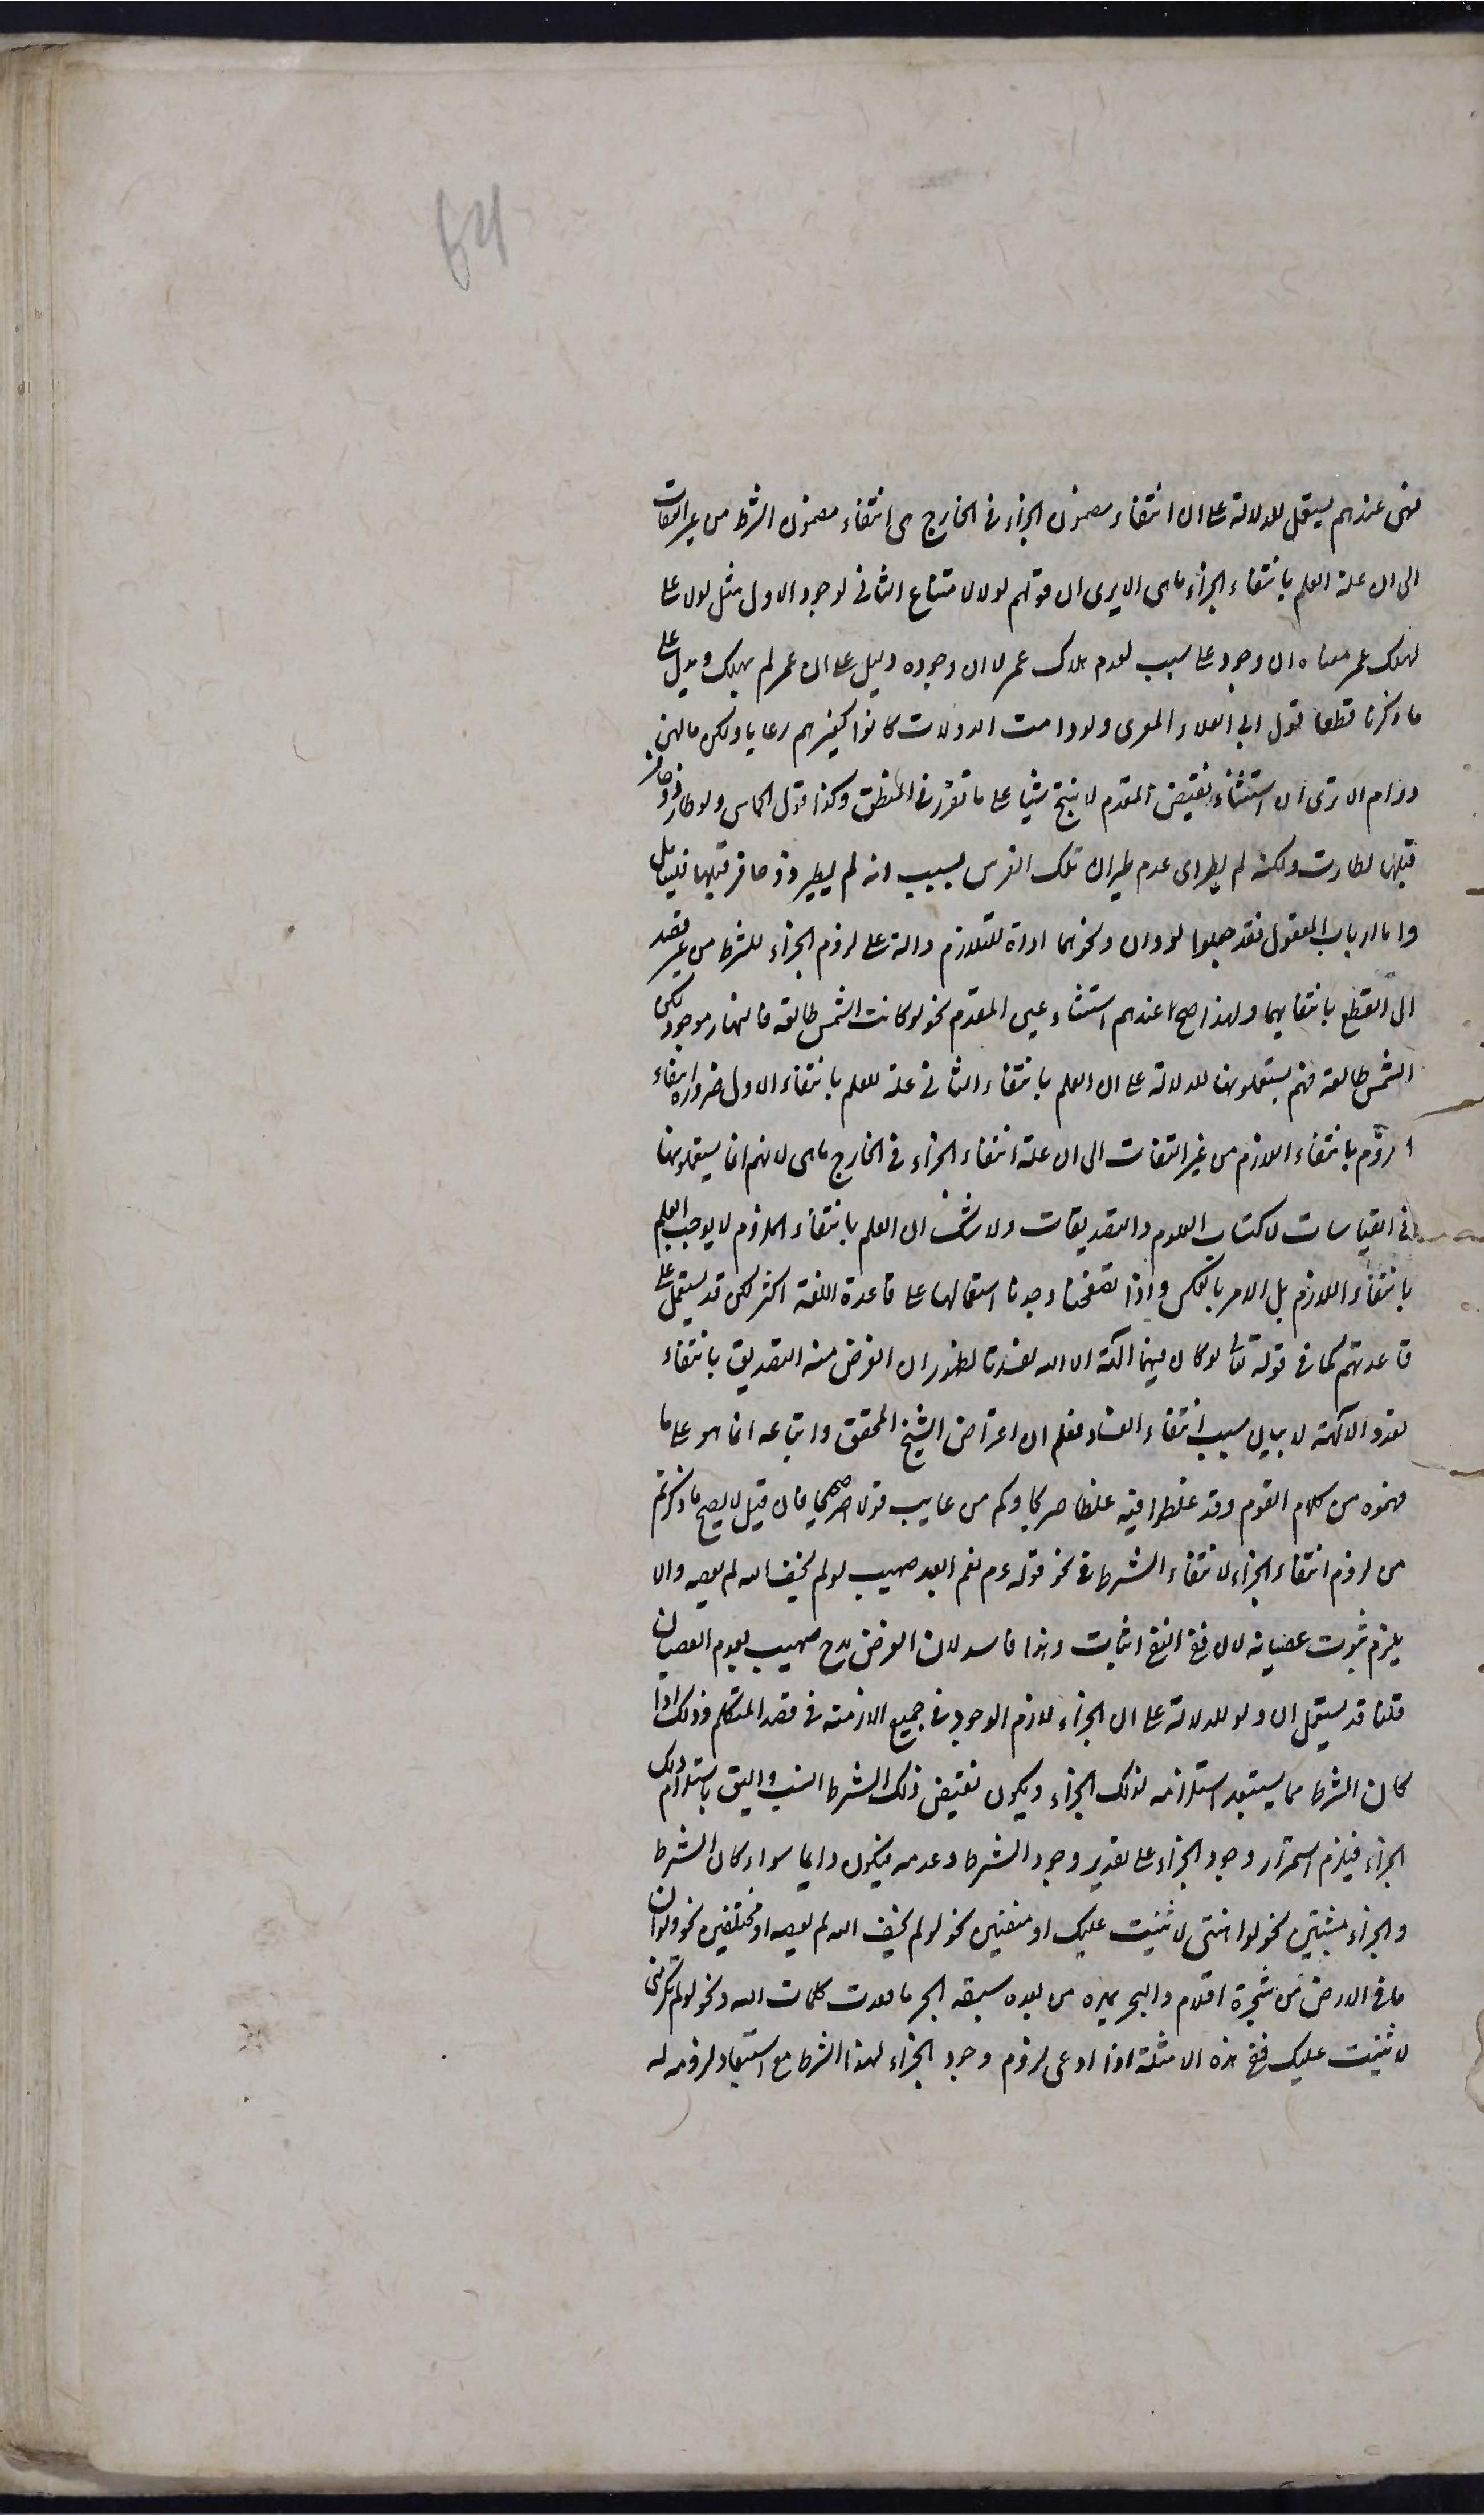 54
فهى عندهم يستعمل للدلالة على ان انتفاء مضمون الجزاء فى الخارج هى انتفاء مضمون الشرط من غير التفات
الى ان علة العلم بانتفاء الجزاء ماهى الا يرى ان قولهم لولا لامتناع الثانى لوجود الاول مثل لولا على
لهلك عمر معناه ان وجود على سبب لعدم هلاك عمر لا ان وجوده دليل على ان عمر لم يهلك ويدل على
ما ذكرنا قطعا قول ابى العلاء المعرى ولو دامت الدولات كانوا كغيرهم رعايا ولكن مالهن
دوام الا ترى ان استثناء نقيض المقدم لا ينتج شيأ على ما تقرر فى المنطق وكذا قول الحماسى ولو طار ذو حافر
قبلها لطارت ولكنه لم يطر اى عدم طيران تلك الفرس بسبب انه لم يطير ذو حافر قبلها فليتامل
واما ارباب المعقول فقد جعلوا لو وان ونحوهما اداة للتلازم دالة على لزوم الجزاء للشرط من غير قصد
الى القطع بانتفائهما ولهذا صح عندهم استثناء عين المقدم نحو لو كانت الشمس طالعة فالنهار موجود لكن
الشمس طالعة فهم يستعملونها للدلالة على ان العلم بانتفاء الثانى علة للعلم بانتفاء الاول ضرورة انتفاء
الملزوم بانتفاء اللازم من غير التفات الى ان علة انتفاء الجزاء فى الخارج ماهى لانهم انما يستعملونها
فى القياسات لاكتساب العلوم والتصديقات ولا شك ان العلم بانتفاء الملزوم لا يوجب العلم
بانتفاء اللازم بل الامر بالعكس واذا تصفحنا وجدنا استعمالها على قاعدة اللغة اكثر لكن قد يستعمل على
قاعدتهم كما فى قوله تعالى لو كان فيهما آلهة الا الله لفسدتا لظهور ان الغرض منه التصديق بانتفاء
تعدد الآلهة لا بيان سبب انتفاء الفساد فعلم ان اعتراض الشيخ المحقق واتباعه انما هو على ما
فهموه من كلام القوم وقد غلطوا فيه غلطا صريحا وكم من عايب قولا صحيحا فان قيل لا يصح ما ذكرتم
من لزوم انتفاء الجزاء لانتفاء الشرط فى نحو قوله عم نعم العبد صهيب لو لم يخف الله لم يعصه والا
يلزم ثبوت عصيانه لان نفى النفى اثبات وهذا فاسد لان الغرض مدح صهيب بعدم العصيان
قلنا قد يستعمل ان ولو للدلالة على ان الجزاء لازم الوجود فى جميع الازمنة فى قصد المتكلم وذلك اذا
كان الشرط مما يستبعد استلزامه لذلك الجزاء ويكون نقيض ذلك الشرط انسب واليق باستلزام ذلك
الجزاء فيلزم استمرار وجود الجزاء على تقدير وجود الشرط وعدمه فيكون دايما سواء كان الشرط
والجزاء مثبتين نحو لو اهنتنى لاثنيت عليك او منفيين نحو لو لم يخف الله لم يعصه او مختلفين نحو ولو ان
ما فى الارض من شجرة اقلام والبحر يمده من بعده سبعة ابحر ما نفدت كلمات الله ونحو لو لم تكرمنى
لاثنيت عليك ففى هذه الامثلة اذا ادعى لزوم وجود الجزاء لهذا الشرط مع استبعاد لزومه له